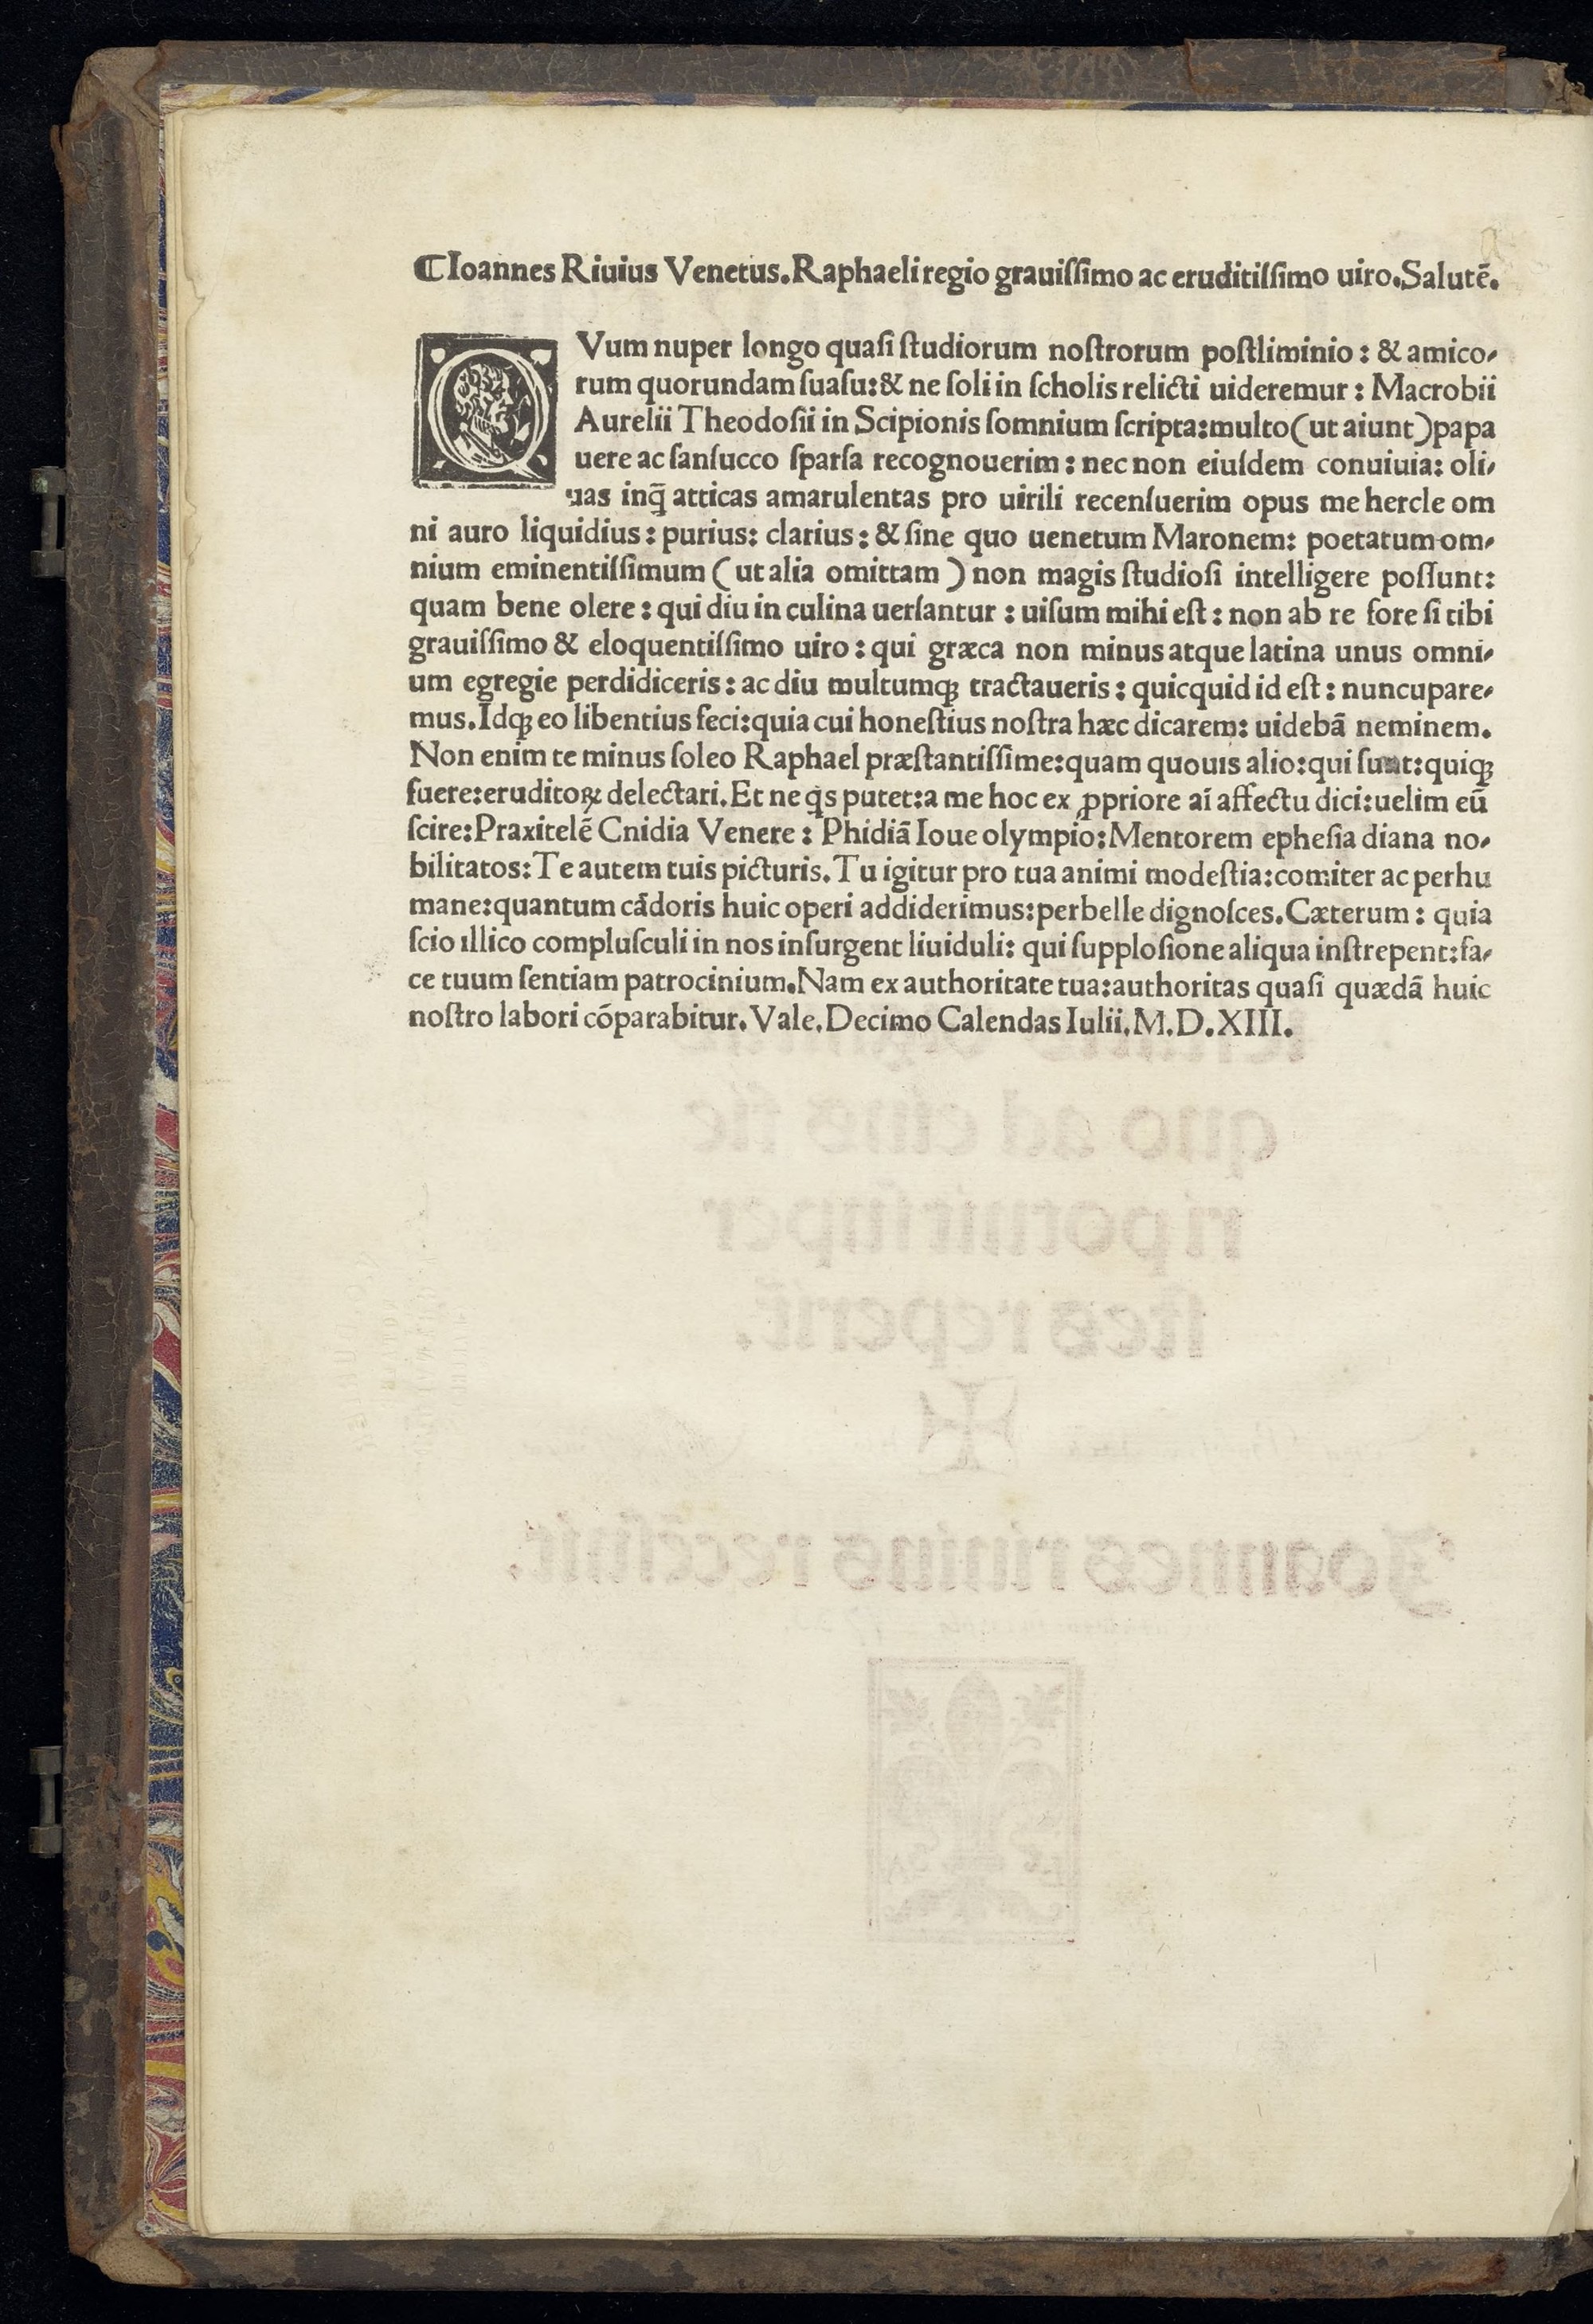 ¶Ioannes Riuius Venetus.Raphaeli regio grauiſſimo ac eruditiſſimo uiro.Salutē.
QVum nuper longo quaſi ſtudiorum noſtrorum poſtliminio: & amico-
rum quorundam ſuaſu:& ne ſoli in ſcholis relicti uideremur: Macrobii
Aurelii Theodoſii in Scipionis ſomnium ſcripta:multo(ut aiunt)papa
uere ac ſanſucco ſparſa recognouerim: nec non eiuſdem conuiuia: oli-
uas inq̃ atticas amarulentas pro uirili recenſuerim opus me hercle om
ni auro liquidius: purius: clarius: & ſine quo uenetum Maronem: poetatum om-
nium eminentiſſimum (ut alia omittam) non magis ſtudioſi intelligere poſſunt:
quam bene olere: qui diu in culina uerſantur: uiſum mihi eſt: non ab re fore ſi tibi
grauiſſimo & eloquentiſſimo uiro: qui græca non minus atque latina unus omni-
um egregie perdidiceris: ac diu multumqꝫ tractaueris: quicquid id eſt: nuncupare-
mus.Idqꝫ eo libentius feci:quia cui honeſtius noſtra hæc dicarem: uidebā neminem.
Non enim te minus ſoleo Raphael præſtantiſſime:quam quouis alio:qui ſunt:quiqꝫ
fuere:eruditoꝝ delectari.Et ne q̇s putet:a me hoc ex ꝓpriore aī affectu dici:uelim eū
ſcire:Praxitelē Cnidia Venere: Phidiā Ioue olympio:Mentorem epheſia diana no-
bilitatos:Te autem tuis picturis.Tu igitur pro tua animi modeſtia:comiter ac perhu
mane:quantum cādoris huic operi addiderimus:perbelle dignoſces.Cæterum: quia
ſcio illico compluſculi in nos inſurgent liuiduli: qui ſupploſione aliqua inſtrepent:fa-
ce tuum ſentiam patrocinium.Nam ex authoritate tua:authoritas quaſi quædā huic
noſtro labori cōparabitur.Vale.Decimo Calendas Iulii.M.D.XIII.